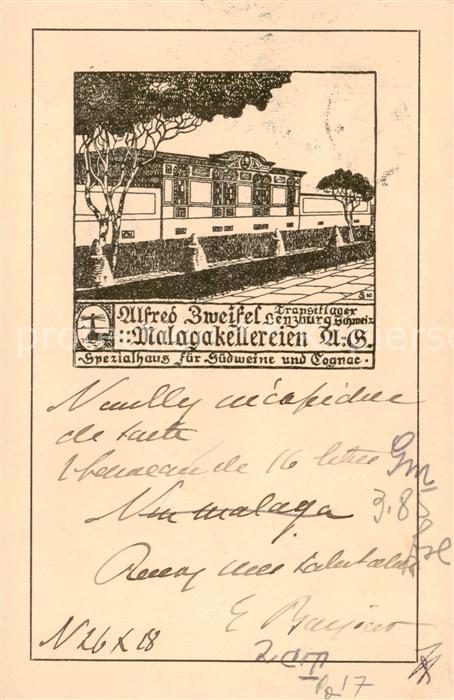 Alfred Zweifel Transitlager
Lenzburg Schweiz
Malagakellereien A.-G.
Spezialhaus für Südweine und Cognac
Veuillez m'expédier
de suite
1 tonneau de 16 litres
Vin malaga
Recevez mes salutations
E
N 26 X 18
3.8
17